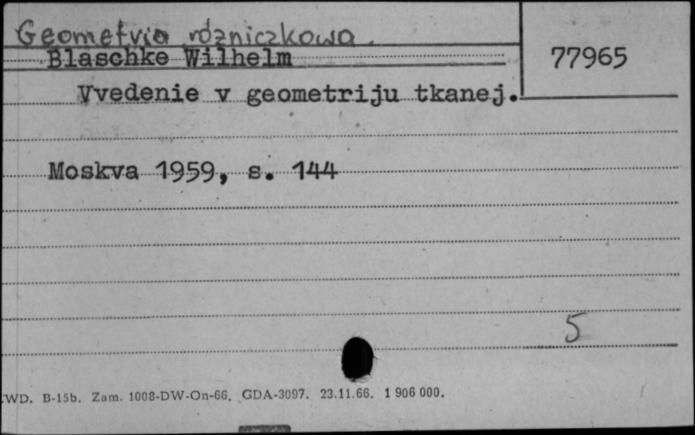 Geometria różniczkowa.
Blaschke Wilhelm
77965
Vvedenie v geometriju tkanej.
Moskva 1959, s. 144
5
WD. B-15b. Zam. 1008-DW-On-66. GDA-3097. 23.11.66. 1 906 000.